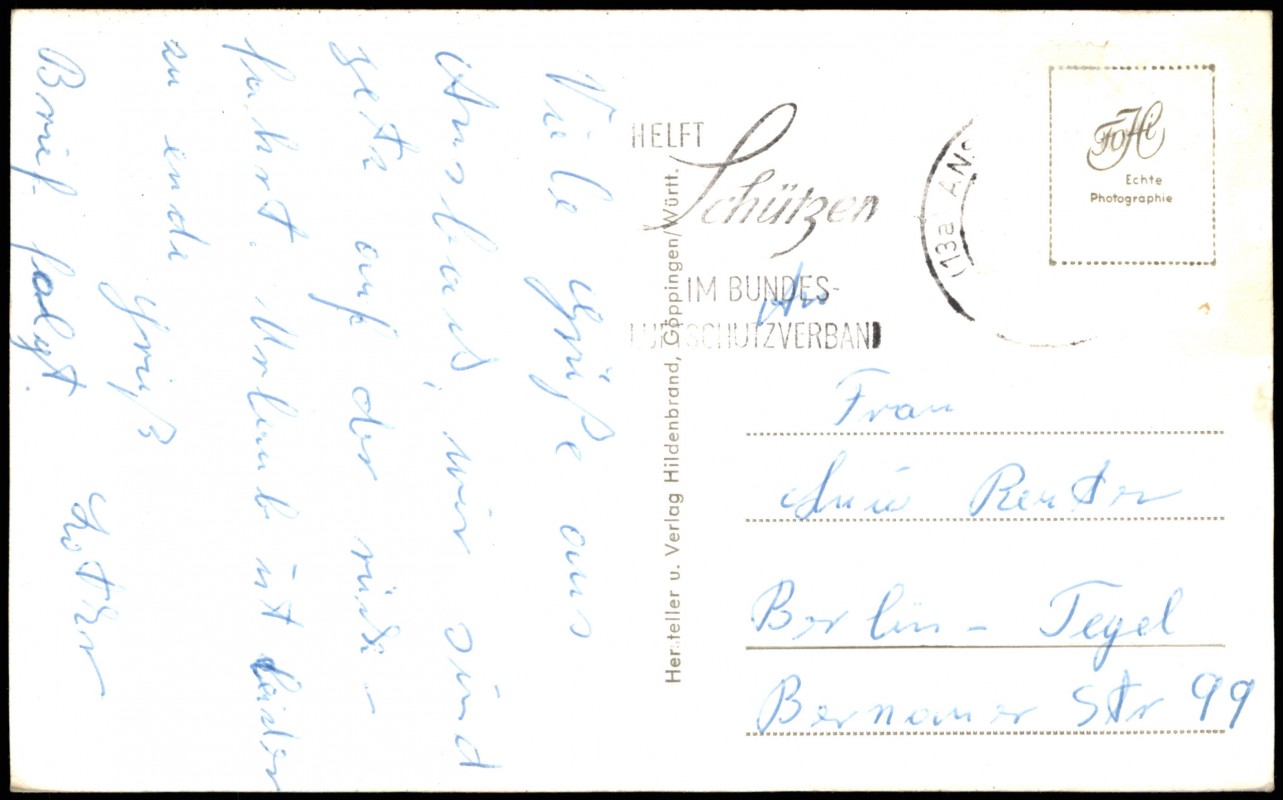 Viele Grüße aus
Ansbach, wir sind
jetz auf der rück-
fahrt. Urlaub ist leider
zu ende
Gruß
Lothar
Brief folgt.
Hersteller u. Verlag Hildenbrand, Göppingen/Württ.
HELFT
Schützen
IM BUNDES-
LUFTSCHUTZVERBAND
(13a) ANS
FoHi
Echte
Photographie
An
Frau
Reuter
Berlin-Tegel
Bernauer Str 99